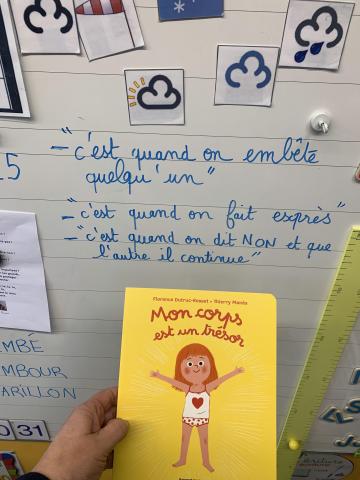 - "c'est quand on embête
quelqu'un"
- "c'est quand on fait exprès"
- "c'est quand on dit NON et que
l'autre il continue"
5
MBÉ
MBOUR
ARILLON
30 31
Florence Dutruc-Rosset • Thierry Manès
Mon corps
est un trésor